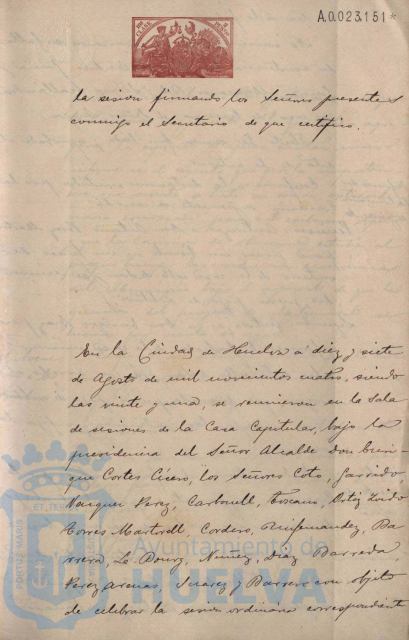 A.0.023.151*
la sesión firmando los Señores presentes
conmigo el Secretario de que certifico.
En la Ciudad de Huelva á diez y siete
de Agosto de mil novecientos cuatro, siendo
las veinte y una, se reunieron en la Sala
de sesiones de la Casa Capitular, bajo la
presidencia del Señor Alcalde don Enri-
que Cortes Cisero, los Señores Coto, Garrido,
Vazquez Perez, Carbonell, Toscano, Ortiz
Torres Martell, Cordero, Ba-
rrera, Le Bourg, Nuñez, Diaz Barreda,
Perez Arenas, Suarez y Barrero con objeto
de celebrar la sesion ordinaria correspondiente
PORTUS MARIS
ET TER
Ayuntamiento de
HUELVA